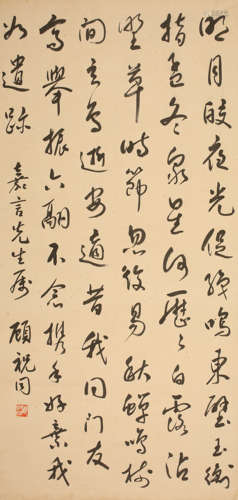 明月皎夜光促織鳴東壁玉衡
指孟冬衆星何歷々白露沾
野草時節忽復易秋蟬鳴樹
間玄鳥逝安適昔我同門友
高舉振六翮不念攜手好棄我
如遺跡 嘉言先生屬 顧祝同